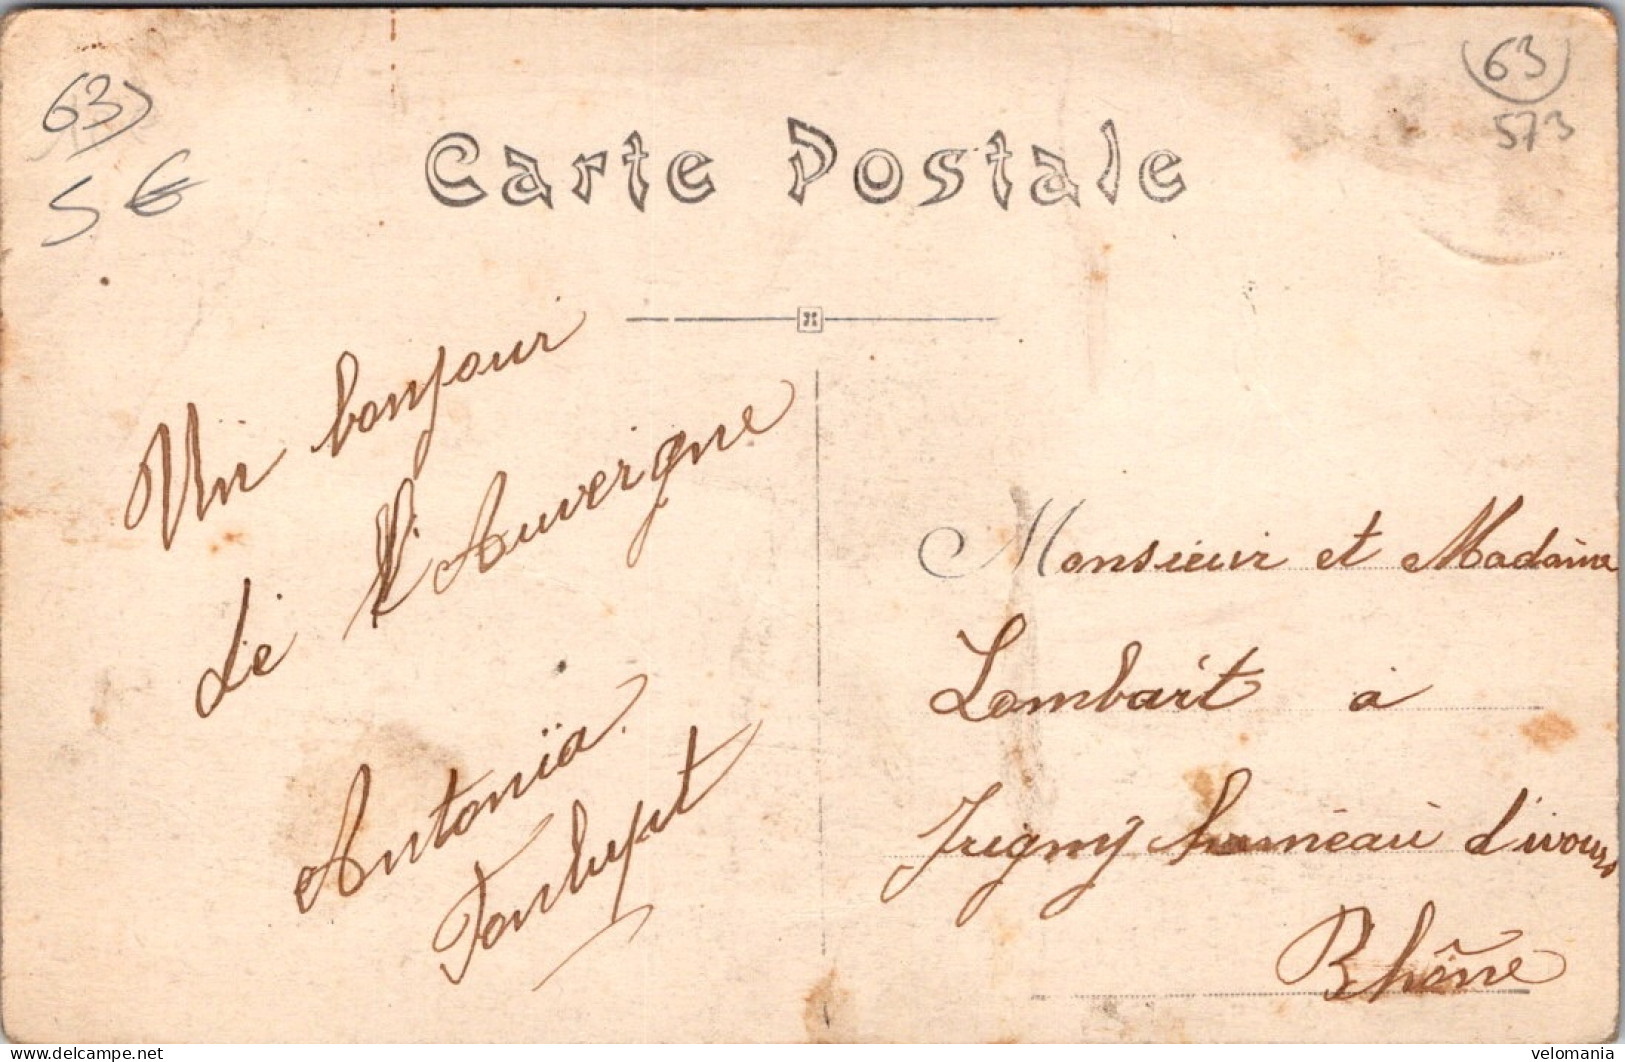 63)
5 €
(63)
573
Carte Postale
Un bonjour
de l'Auvergne
Antonia.
Monsieur et Madame
Lombart a
Irigny hameau d'ivours
Rhône
velomania
www.delcampe.net